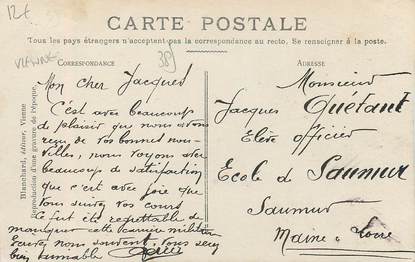 12€
CARTE POSTALE
Tous les pays étrangers n'acceptent pas la correspondance au recto. Se renseigner à la poste.
VIENNE
CORRESPONDANCE
Mon cher Jacques
C'est avec beaucoup
de plaisir que nous avons
reçu de vos bonnes nou-
velles, nous voyons avec
beaucoup de satisfaction
que c'est avec joie que
vous suivez vos cours
Ce fut été regrettable de
manquer cette carrière militaire
nous souvent, vous serez
bien aimable
Blanchard, éditeur, Vienne
Reproduction d'une gravure de l'époque.
ADRESSE
Monsieur
Jacques Quétant
Elève officier
Ecole de Saumur
Saumur
Maine & Loire